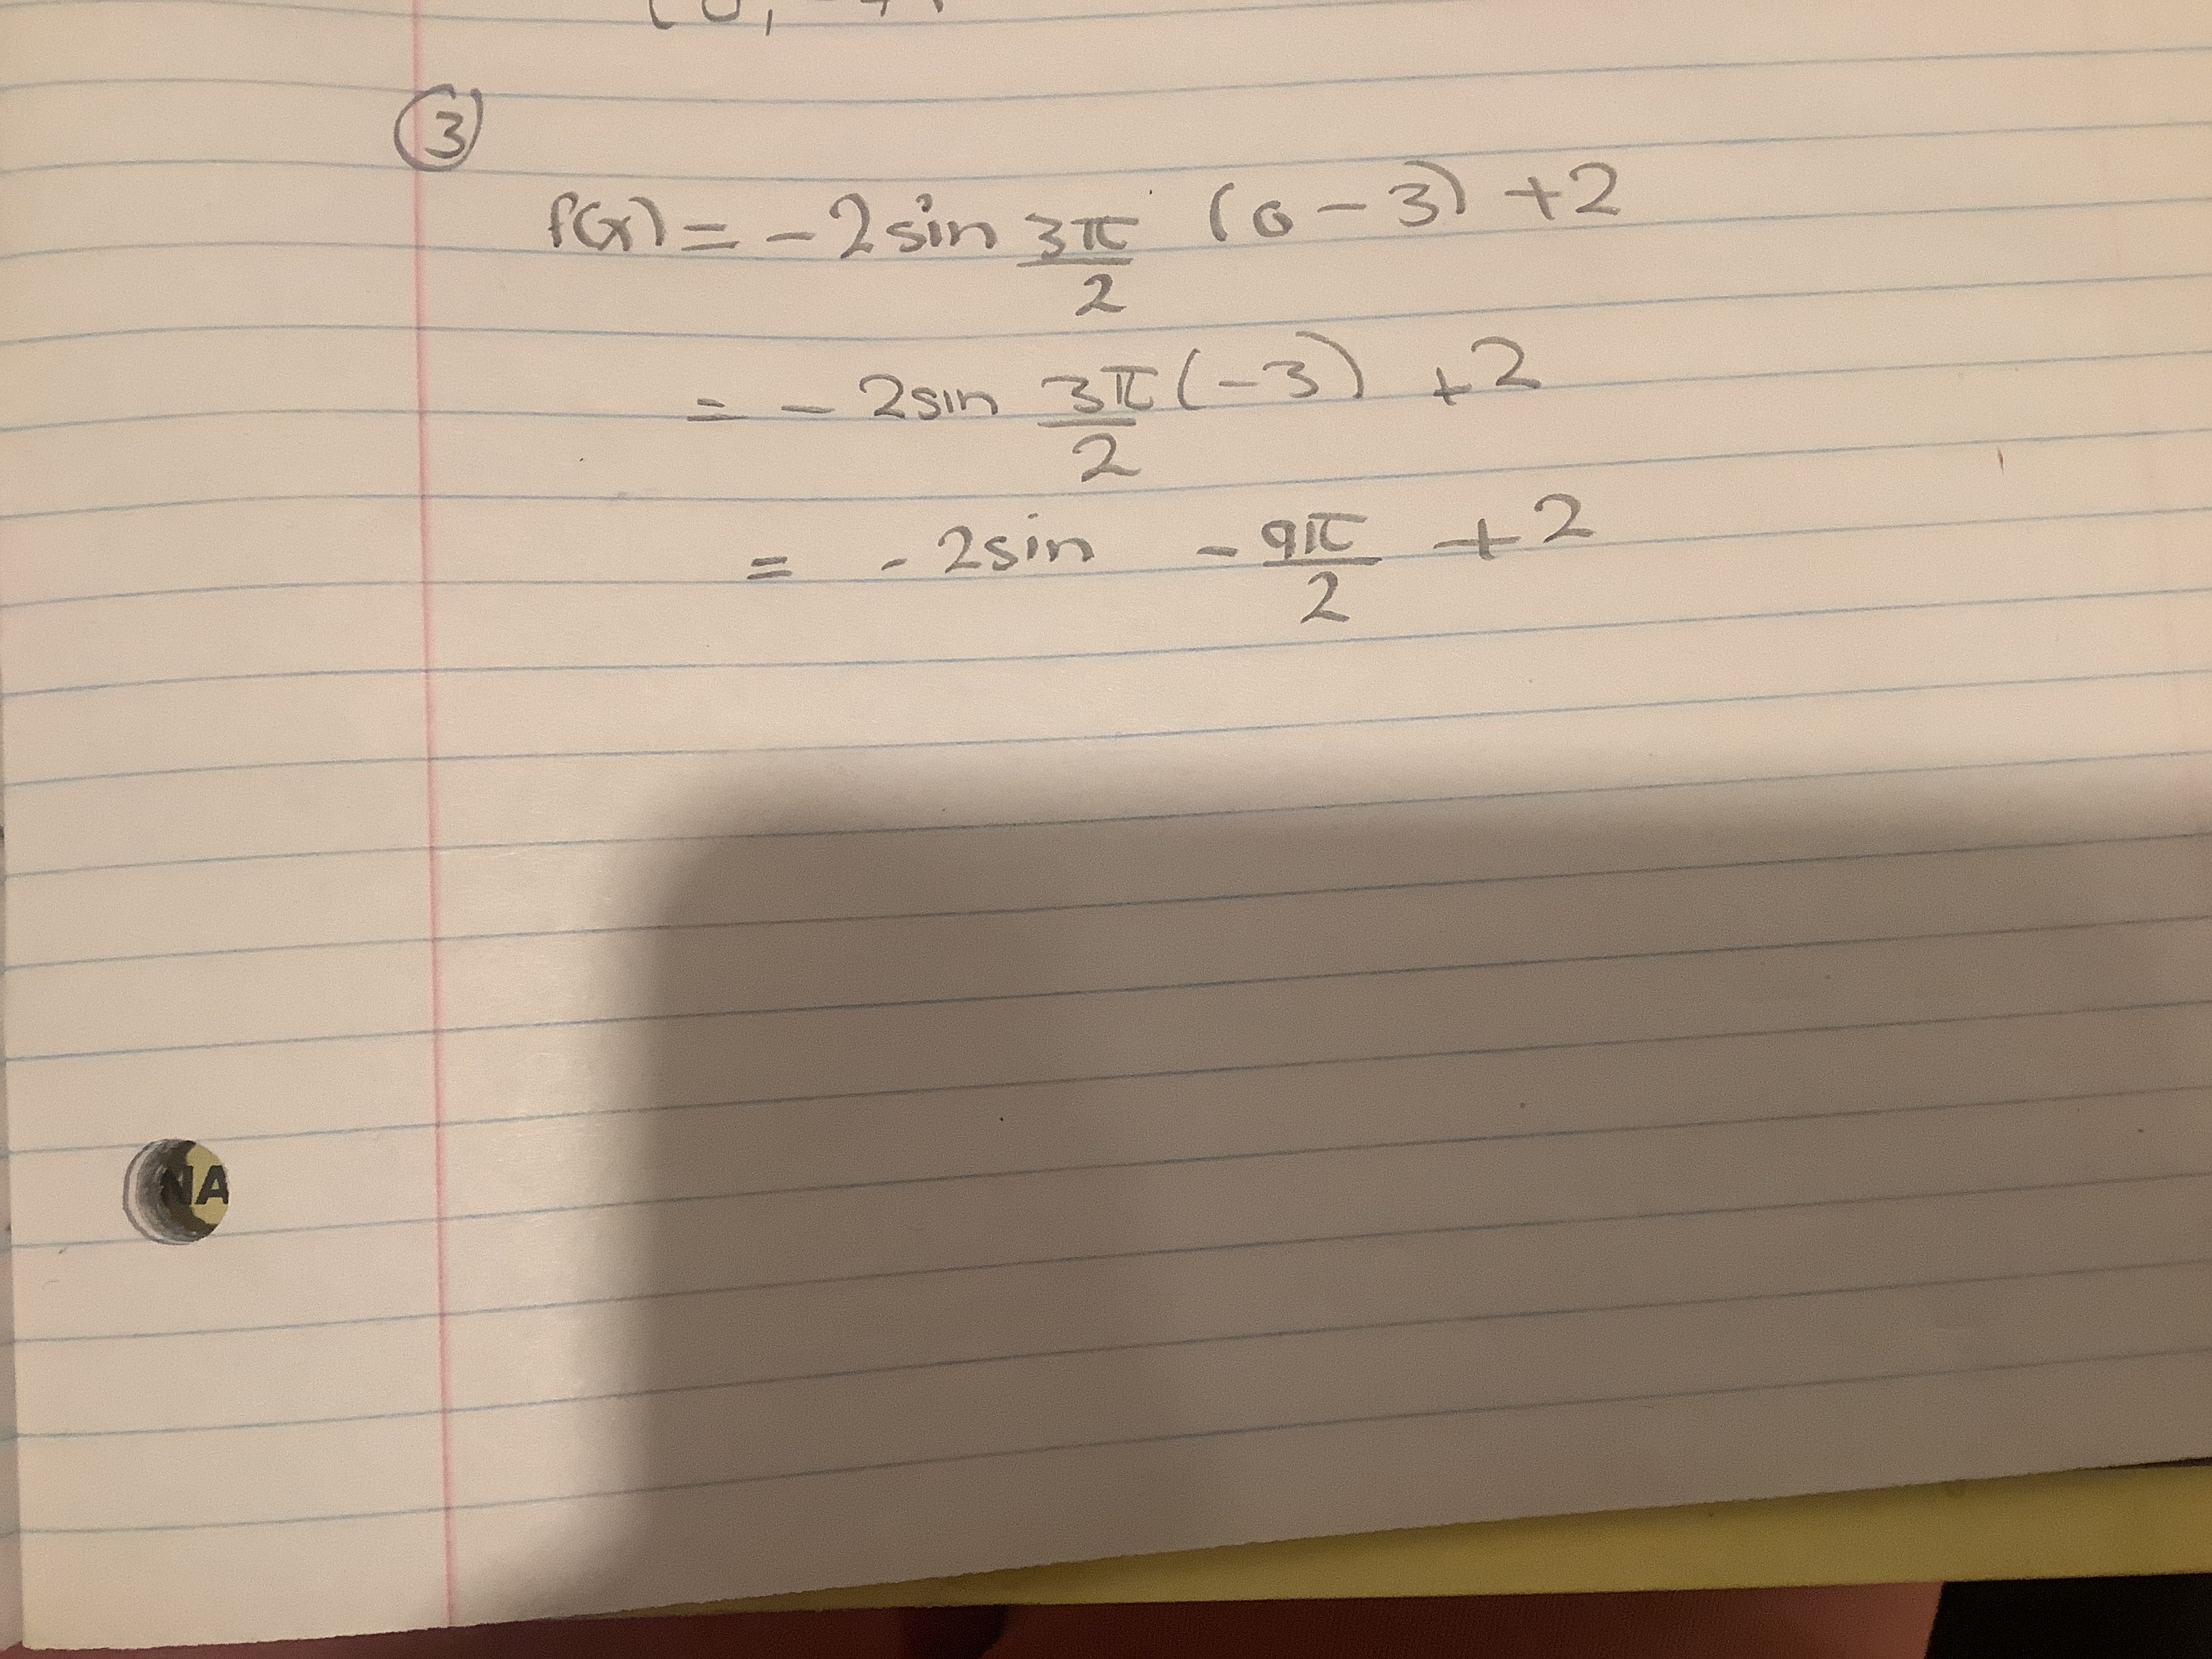 (0, -4)
③
f(x) = -2 sin 3π/2 (0 - 3) + 2
= - 2 sin 3π/2 (-3) + 2
= - 2 sin - 9π/2 + 2
NA